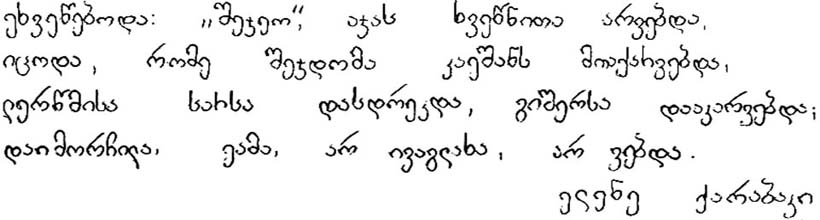 ეხვეწებოდა: „შეჯეო“, აჯას ხვეწნითა არვებდა,
იცოდა, რომე შეჯდომა კაეშანს მოაქარვებდა,
ლერწმისა სარსა დასდრეკდა, გიშერსა დააკარვებდა;
დაიმორჩილა. ეამა, არ ივაგლახა, არ ვებდა.
ელენე ქარაბაკი